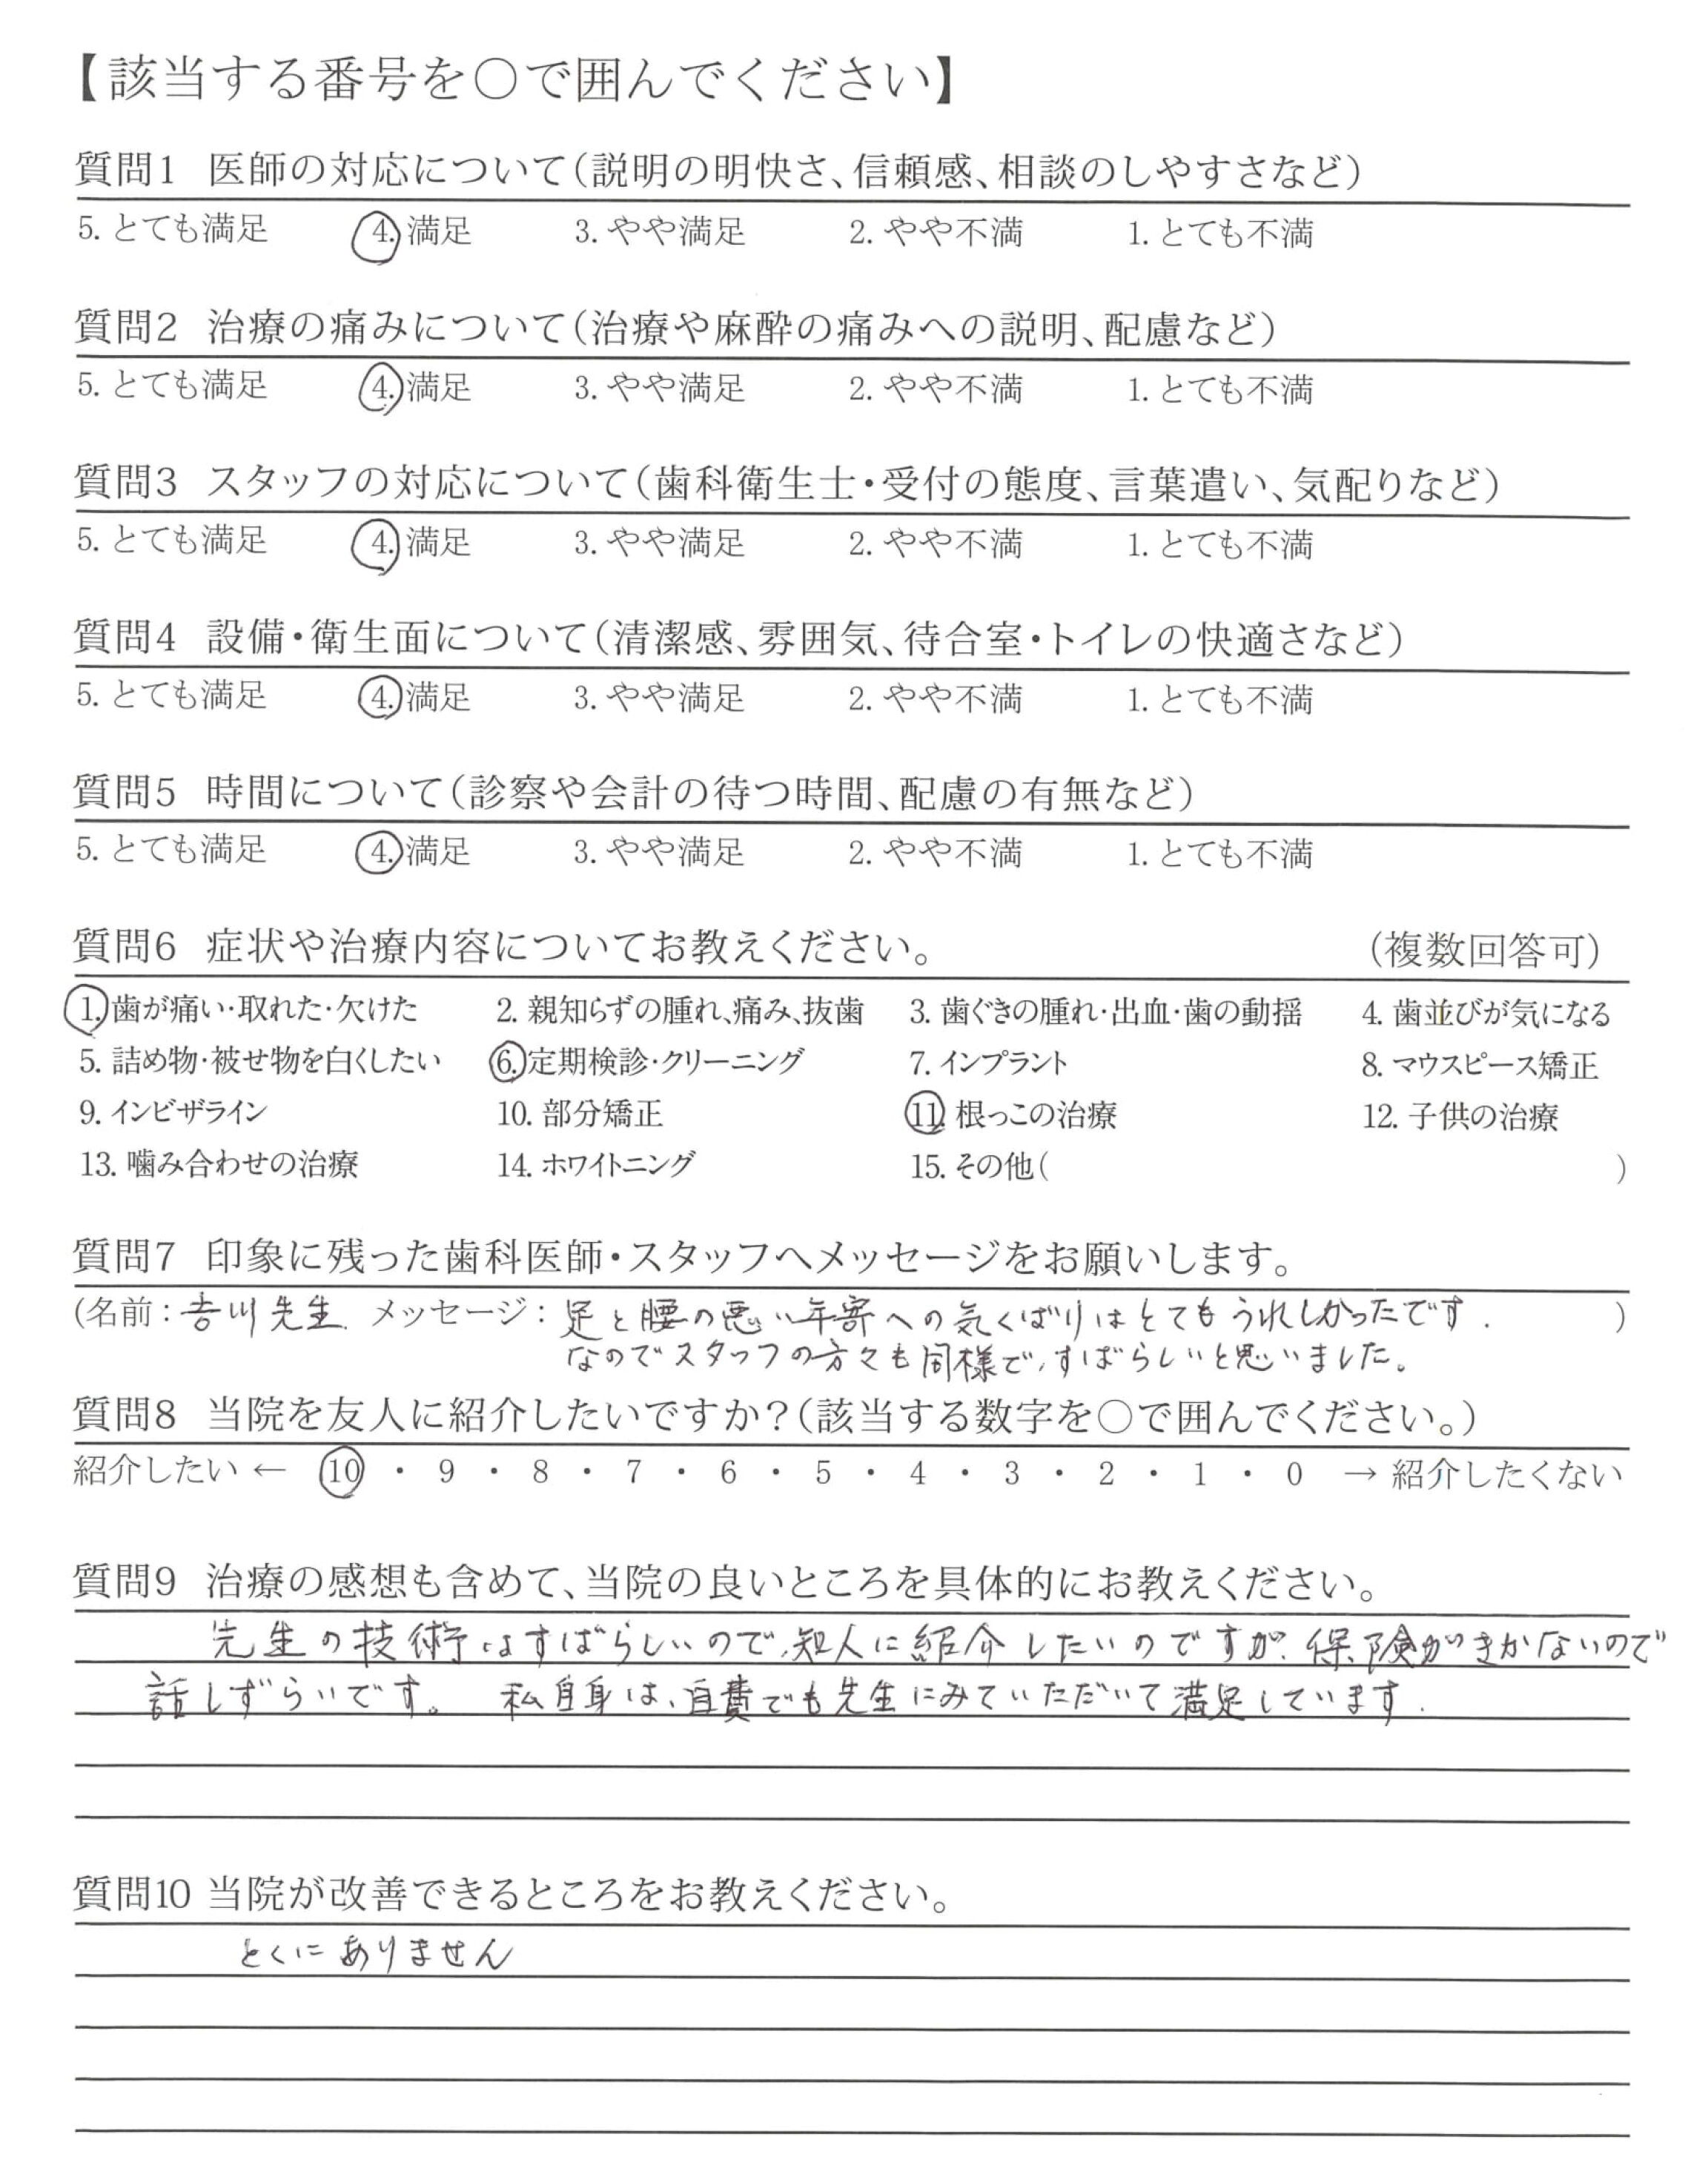 【該当する番号を○で囲んでください】
質問1 医師の対応について(説明の明快さ、信頼感、相談のしやすさなど)
5. とても満足 4. 満足 3. やや満足 2. やや不満 1. とても不満
質問2 治療の痛みについて(治療や麻酔の痛みへの説明、配慮など)
5. とても満足 4. 満足 3. やや満足 2. やや不満 1. とても不満
質問3 スタッフの対応について(歯科衛生士・受付の態度、言葉遣い、気配りなど)
5. とても満足 4. 満足 3. やや満足 2. やや不満 1. とても不満
質問4 設備・衛生面について(清潔感、雰囲気、待合室・トイレの快適さなど)
5. とても満足 4. 満足 3. やや満足 2. やや不満 1. とても不満
質問5 時間について(診察や会計の待つ時間、配慮の有無など)
5. とても満足 4. 満足 3. やや満足 2. やや不満 1. とても不満
質問6 症状や治療内容についてお教えください。 (複数回答可)
1. 歯が痛い・取れた・欠けた 2. 親知らずの腫れ、痛み、抜歯 3. 歯ぐきの腫れ・出血・歯の動揺 4. 歯並びが気になる
5. 詰め物・被せ物を白くしたい 6. 定期検診・クリーニング 7. インプラント 8. マウスピース矯正
9. インビザライン 10. 部分矯正 11. 根っこの治療 12. 子供の治療
13. 噛み合わせの治療 14. ホワイトニング 15. その他( )
質問7 印象に残った歯科医師・スタッフへメッセージをお願いします。
(名前:吉川先生. メッセージ:足と腰の悪い年寄への気くばりはとてもうれしかったです. )
なのでスタッフの方々も同様で、すばらしいと思いました。
質問8 当院を友人に紹介したいですか?(該当する数字を○で囲んでください。)
紹介したい ← 10 ・ 9 ・ 8 ・ 7 ・ 6 ・ 5 ・ 4 ・ 3 ・ 2 ・ 1 ・ 0 → 紹介したくない
質問9 治療の感想も含めて、当院の良いところを具体的にお教えください。
先生の技術はすばらしいので、知人に紹介したいのですが、保険がきかないので
話しずらいです。 私自身は、自費でも先生にみていただいて満足しています.
質問10 当院が改善できるところをお教えください。
とくにありません